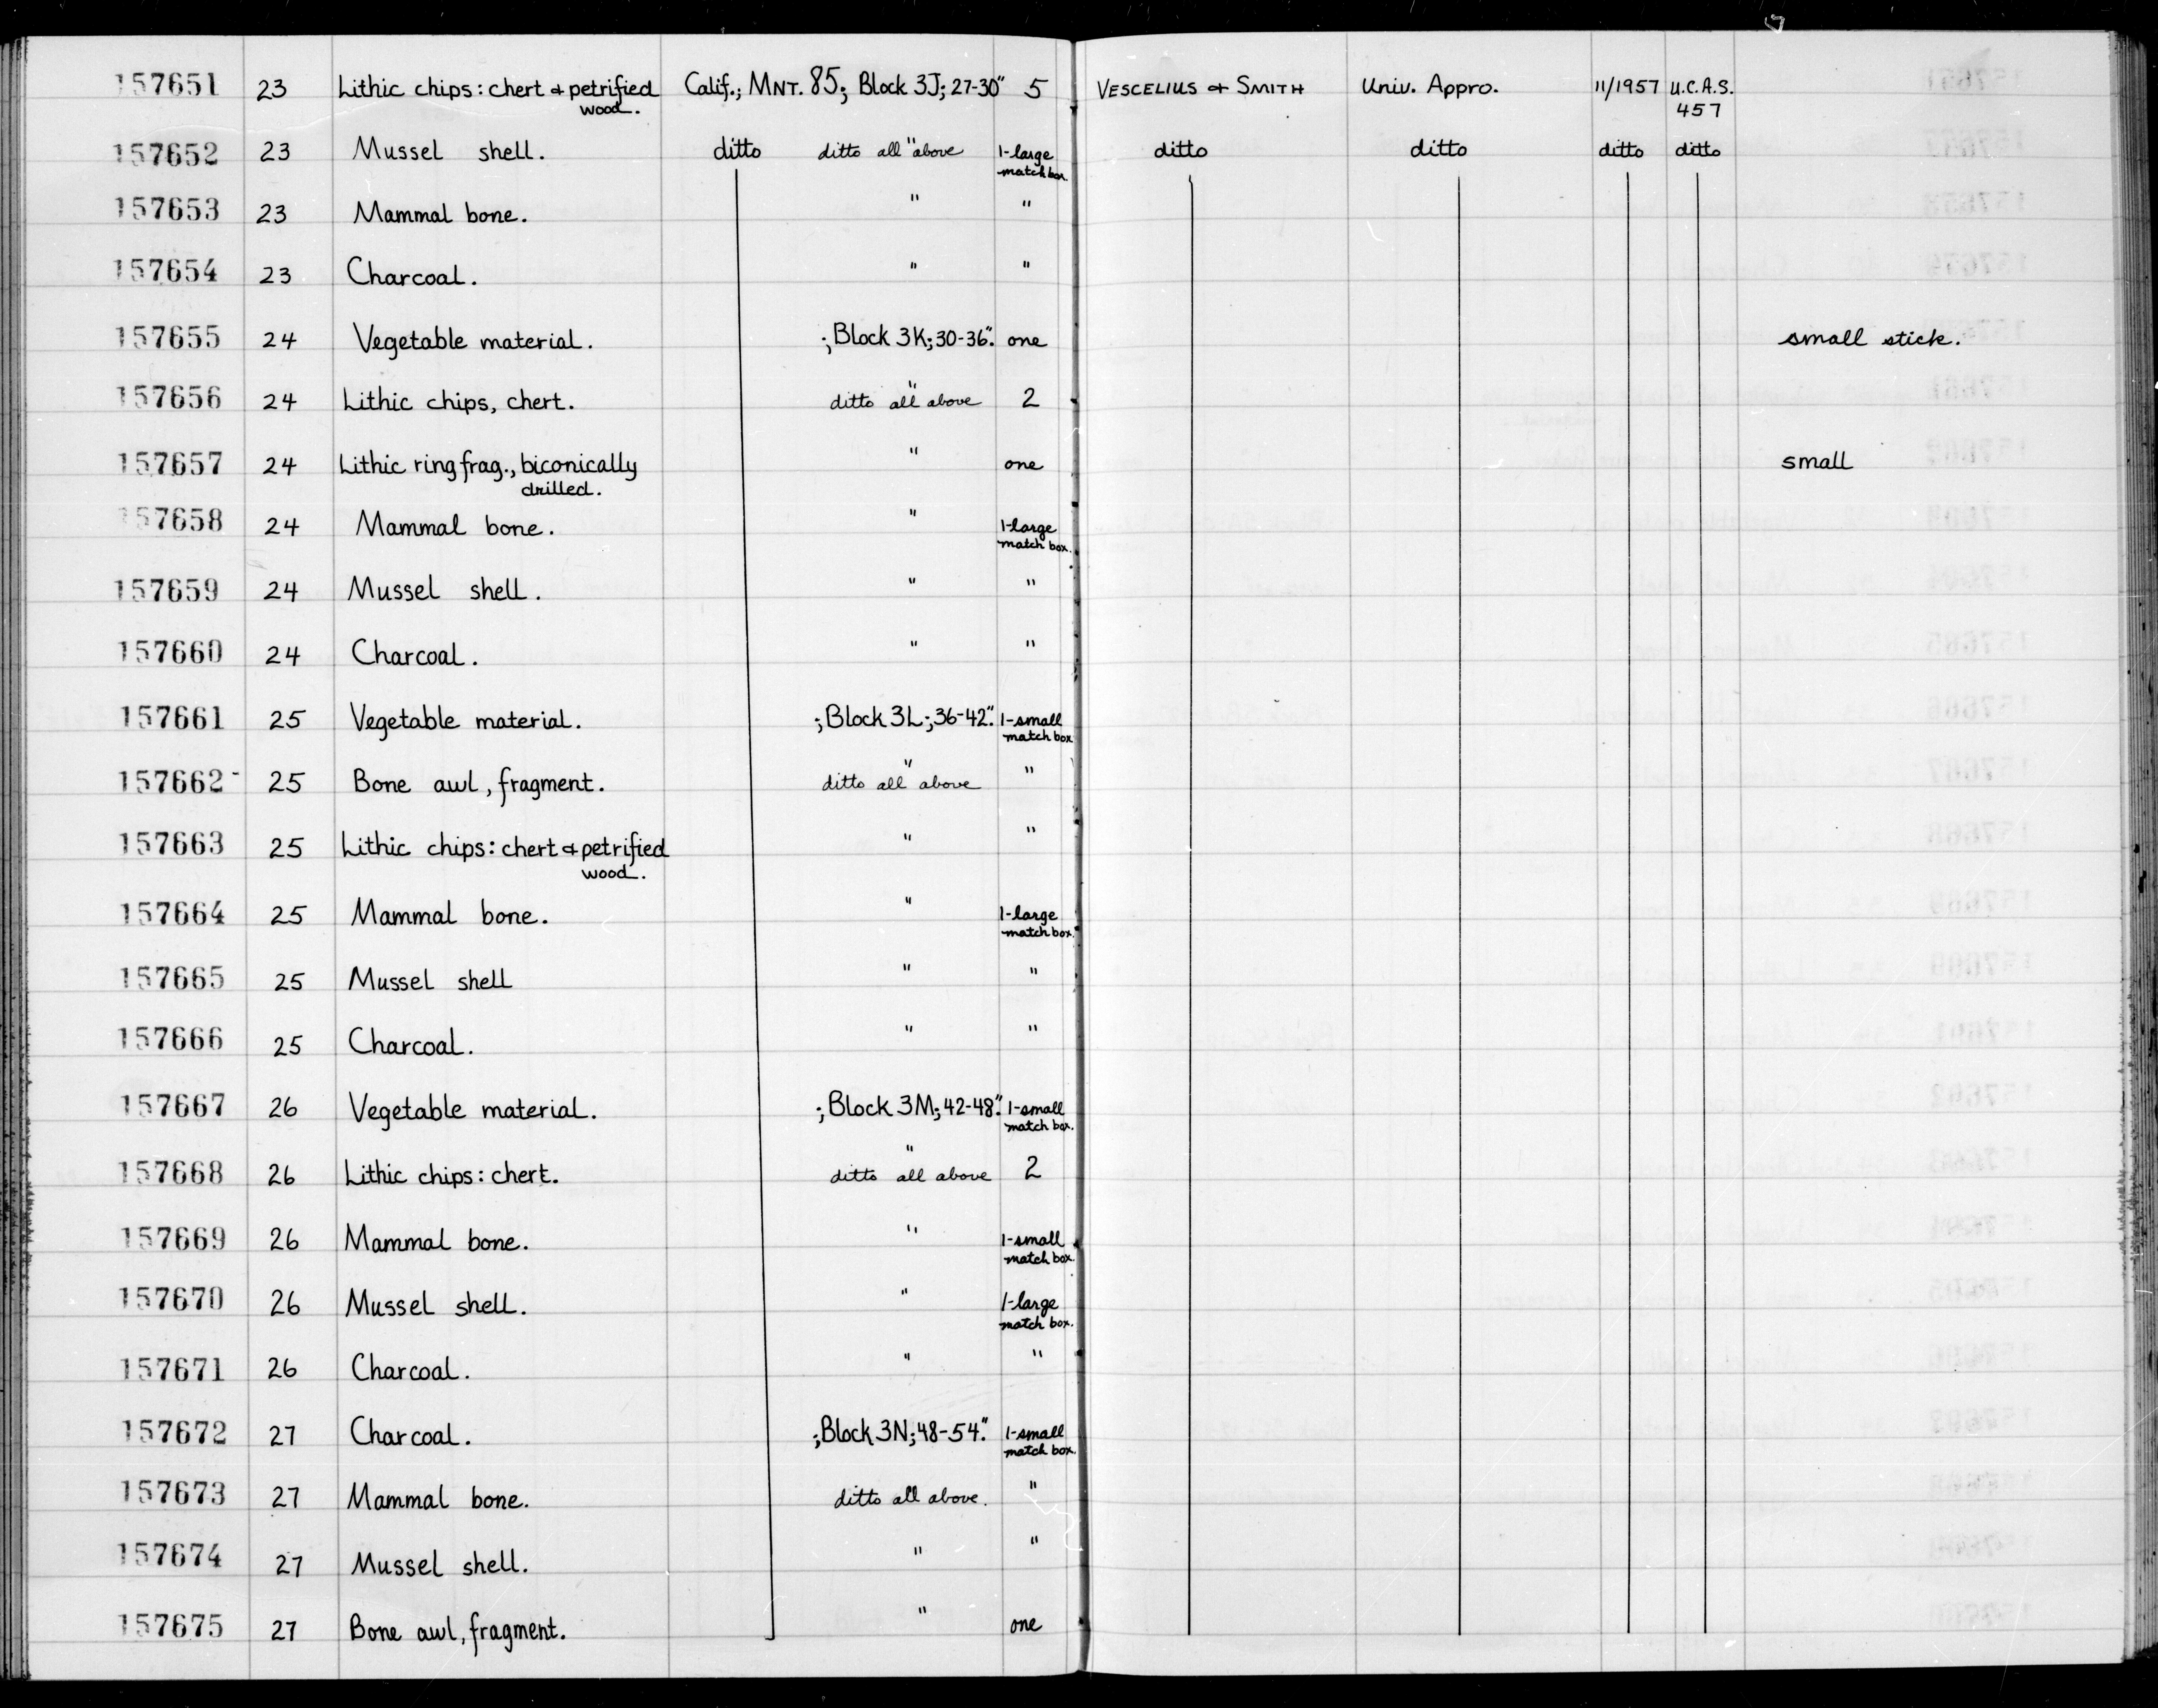 157651 23 Lithic chips: chert & petrified wood. Calif.; MNT. 85; Block 3J; 27-30" 5 VESCELIUS & SMITH Univ. Appro. 11/1957 U.C.A.S. 457
157652 23 Mussel shell. ditto ditto all " above 1-large match box. ditto ditto ditto ditto
157653 23 Mammal bone. " "
157654 23 Charcoal. " "
157655 24 Vegetable material. ; Block 3K; 30-36". one small stick.
157656 24 Lithic chips, chert. ditto all " above 2
157657 24 Lithic ring frag., biconically drilled. " one small
157658 24 Mammal bone. " 1-large match box.
157659 24 Mussel shell. " "
157660 24 Charcoal. " "
157661 25 Vegetable material. ; Block 3L; 36-42". 1-small match box
157662- 25 Bone awl, fragment. ditto all " above "
157663 25 Lithic chips: chert & petrified wood. " "
157664 25 Mammal bone. " 1-large match box.
157665 25 Mussel shell " "
157666 25 Charcoal. " "
157667 26 Vegetable material. ; Block 3M; 42-48". 1-small match box.
157668 26 Lithic chips: chert. ditto " all above 2
157669 26 Mammal bone. " 1-small match box.
157670 26 Mussel shell. " 1-large match box.
157671 26 Charcoal. " "
157672 27 Charcoal. ; Block 3N; 48-54". 1-small match box.
157673 27 Mammal bone. ditto all above. "
157674 27 Mussel shell. " "
157675 27 Bone awl, fragment. " one